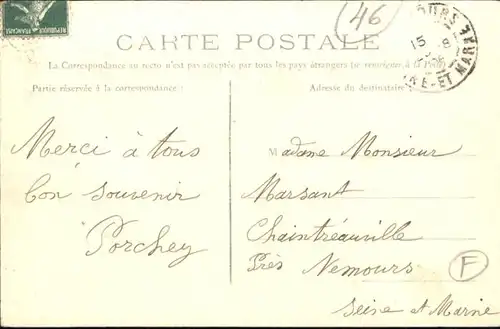 REPUBLIQUE FRANÇAISE
46
CARTE POSTALE
La Correspondance au recto n'est pas acceptée par tous les pays étrangers (se renseigner à la Poste)
Partie réservée à la correspondance :
Adresse du destinataire
15 8
NE-ET MARNE
Merci à tous
bon souvenir
Porchey
Madame Monsieur
Marsant
Chaintréauville
Près Nemours
Seine et Marne
F